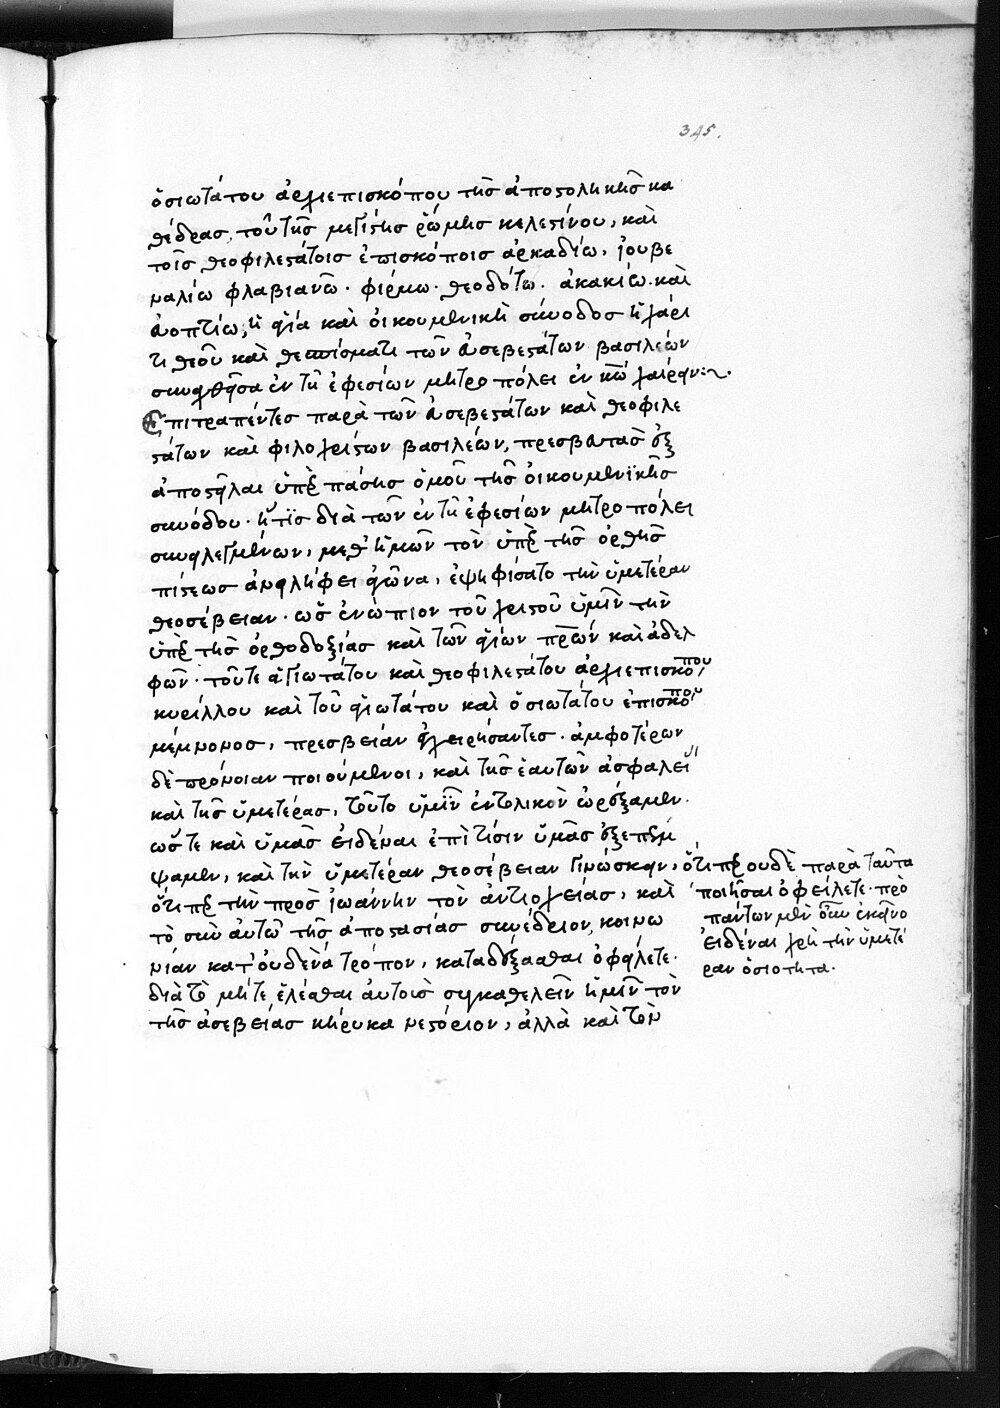 345.
ὁσιωτάτου ἀρχιεπισκόπου τῆς ἀποστολικῆς κα
θέδρας, τοῦ τῆς μεγίστης ῥώμης κελεστίνου, καὶ
τοῖς θεοφιλεστάτοις ἐπισκόποις ἀρκαδίω, ἰουβε
ναλίω φλαβιανῶ · φίρμω · θεοδότω · ἀκακίω · καὶ
ἐυοπτίω, ἡ ἁγία καὶ οἰκουμενικὴ σύνοδος ἡ χάρι
τι θεοῦ καὶ θεσπίσματι τῶν ἐυσεβεστάτων βασιλέων
συναχθεῖσα ἐν τῆ ἐφεσίων μητροπόλει ἐν κω χαίρειν :~.
Ἐπιτραπέντες παρὰ τῶν ἐυσεβεστάτων καὶ θεοφιλε
στάτων καὶ φιλοχρίστων βασιλέων, πρεσβευτὰς
ἀποστεῖλαι ὑπὲρ πάσης ὁμοῦ τῆς οἰκουμενϊκῆς
συνόδου · ἥτϊς διὰ τῶν ἐν τῆ ἐφεσίων μητροπόλει
συνειλεγμένων, μεθ ἡμῶν τὸν ὑπὲρ τῆς ὀρθῆς
πίστεως ἀνείληφει ἀγῶνα, ἐψηφίσατο τὴν ὑμετέραν
θεοσέβειαν · ὡς ἐνώπιον τοῦ χριστοῦ ὑμῖν τὴν
ὑπὲρ τῆς ὀρθοδοξίας καὶ τῶν ἁγίων πρων καὶ ἀδελ
φῶν · τοῦτε ἁγιωτάτου καὶ θεοφιλεστάτου ἀρχιεπισκόπου
κυρίλλου καὶ τοῦ ἁγιωτάτου καὶ ὁσιωτάτου ἐπισκόπου
μέμνονος, πρεσβείαν ἐγχειρήσαντες · ἀμφοτέρων
δὲ πρόνοιαν ποιούμενοι, καὶ τῆς ἑαυτῶν ἀσφαλεί
καὶ τῆς ὑμετέρας, τοῦτο ὑμῖν ἐντολικὸν ὠρέξαμεν ·
ὥστε καὶ ὑμᾶς ἐιδέναι ἐπὶ τίσιν ὑμᾶς ἐξεπέμ
ψαμεν, καὶ τὴν ὑμετέραν θεοσέβειαν γινώσκειν,
ὅτιπερ τὴν πρὸς ἰωάννην τὸν ἀντιοχείας, καὶ
τὸ σὺν αὐτῶ τῆς ἀποστασίας συνέδριον, κοινω
νίαν κατ' οὐδένα τρόπον, καταδέξασθαι ὀφείλετε ·
διὰ τὸ μήτε ἑλέσθαι αὐτοὺς συγκαθελεῖν ἡμῖν τὸν
τῆς ἀσεβείας κήρυκα νεστόριον, ἀλλὰ καὶ τὸν
ὅτιπερ ουδὲ παρὰ ταῦτα
ποιῆσαι ὀφείλετε · πρὸ
πάντων μὲν οὖν ἐκεῖνο
ἐιδέναι χρὴ τὴν ὑμετέ
ραν ὁσιότητα.